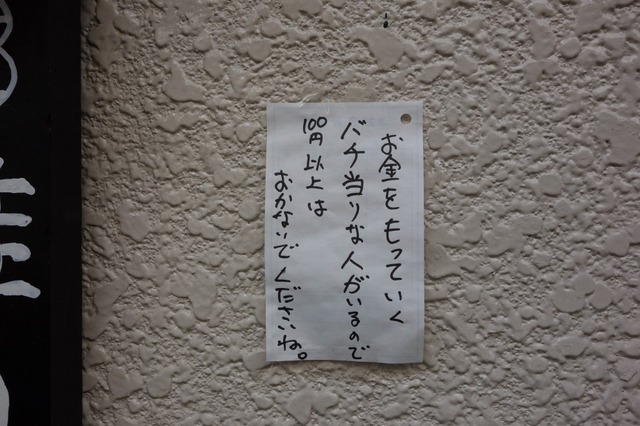 お金をもっていく
バチ当りな人がいるので
100円以上は
おかないでくださいね。